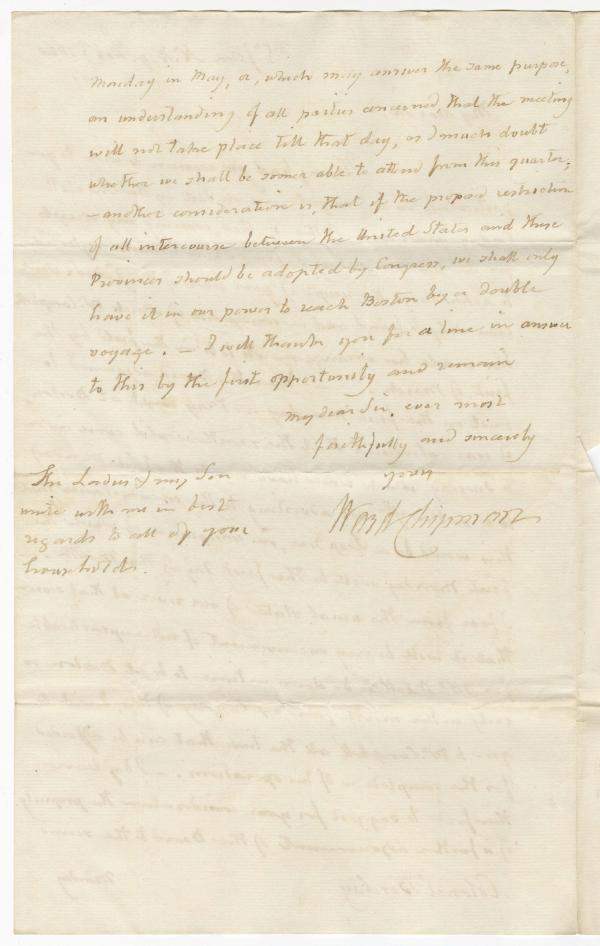 Monday in May, or, which may answer the same purpose,
an understanding of all parties concerned, that the meeting
will not take place till that day, as I much doubt
whether we shall be sooner able to attend from this quarter;
– another consideration is, that if the proposed restriction
of all intercourse between the United States and these
Provinces should be adopted by Congress, we shall only
have it in our power to reach Boston by a double
voyage. – I will thank you for a line in answer
to this by the first opportunity and remain
my dear Sir, ever most
faithfully and sincerely
yours
Ward Chipman
The Ladies & my Son
unite with me in best
regards to all of your
household.